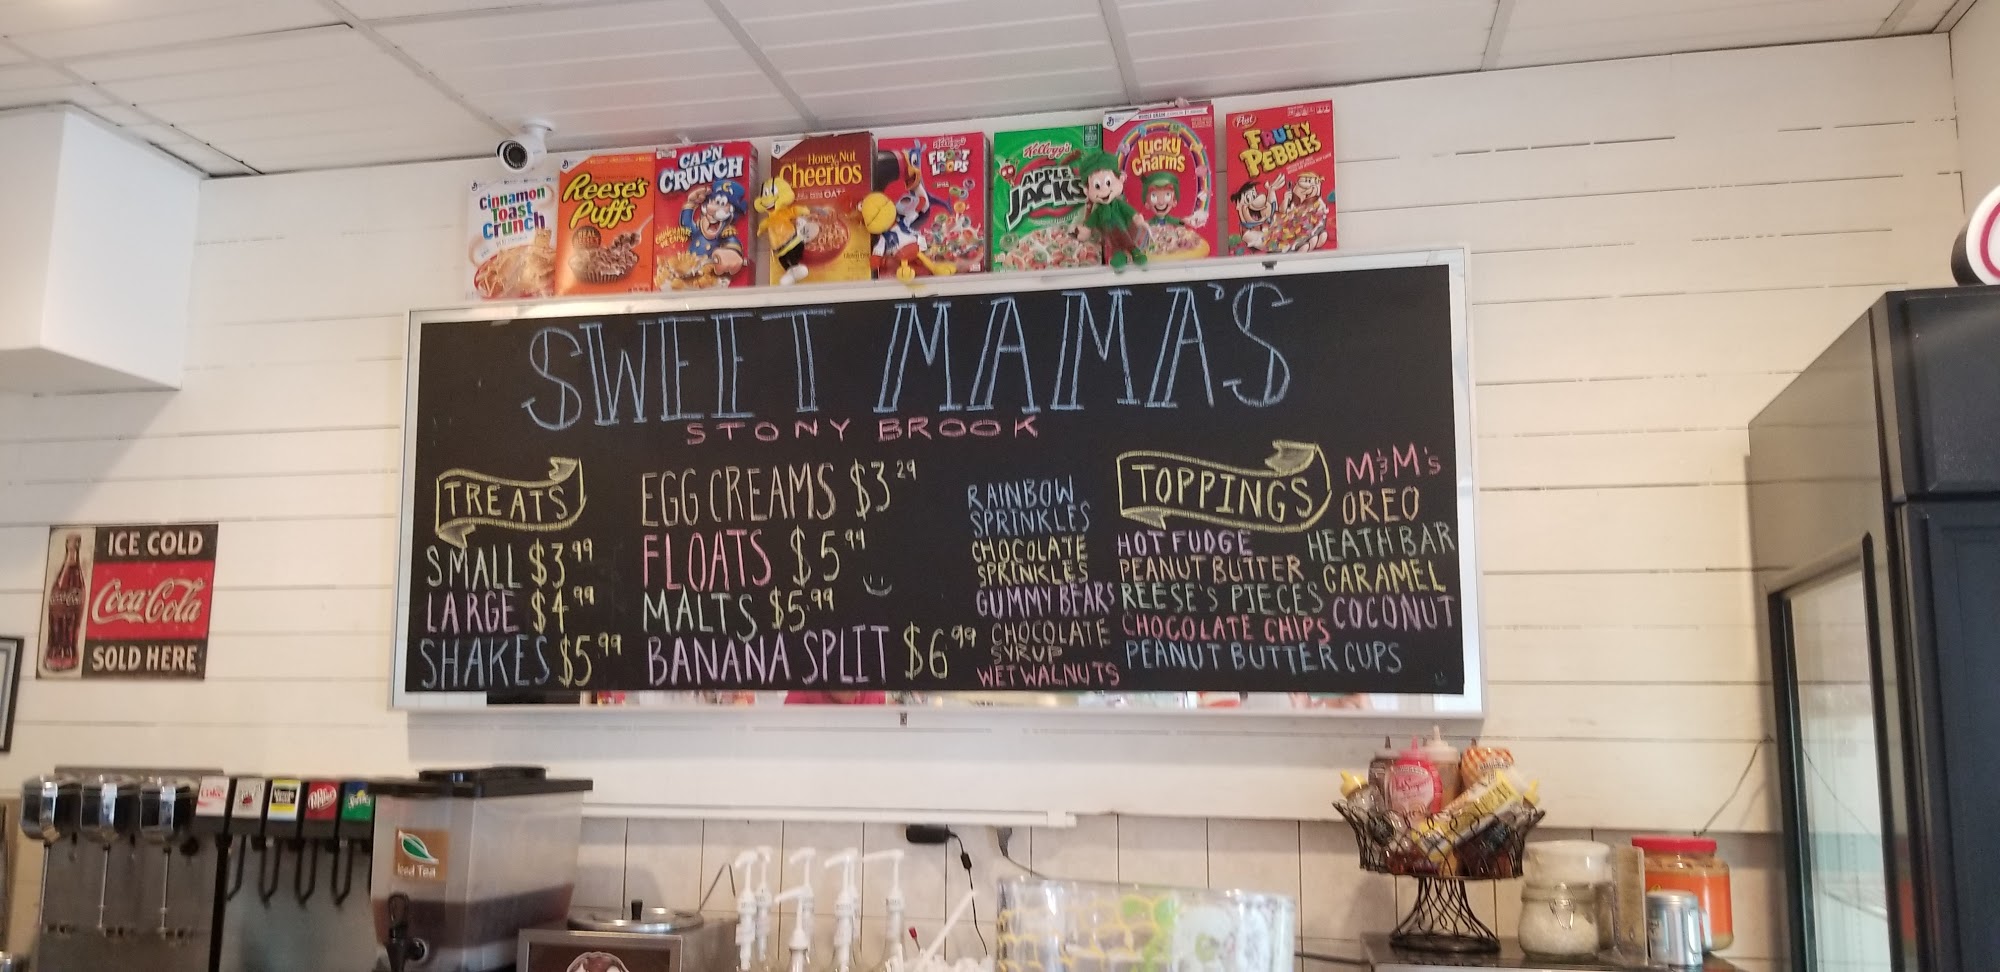 Cinnamon
Toast
Crunch
Reese's
Puffs
CAP'N
CRUNCH
Honey Nut
Cheerios
Kellogg's
FROOT
LOOPS
Kellogg's
APPLE
JACKS
Lucky
Charms
Post
FRUITY
PEBBLES
SWEET MAMA'S
STONY BROOK
TREATS
SMALL $3.99
LARGE $4.99
SHAKES $5.99
EGG CREAMS $3.29
FLOATS $5.99
MALTS $5.99
BANANA SPLIT $6.99
RAINBOW
SPRINKLES
CHOCOLATE
SPRINKLES
GUMMY BEARS
CHOCOLATE
SYRUP
WET WALNUTS
TOPPINGS
HOT FUDGE
PEANUT BUTTER
REESE'S PIECES
CHOCOLATE CHIPS
PEANUT BUTTER CUPS
M&M's
OREO
HEATH BAR
CARAMEL
COCONUT
ICE COLD
Coca-Cola
SOLD HERE
Coke
Dr Pepper
Iced Tea